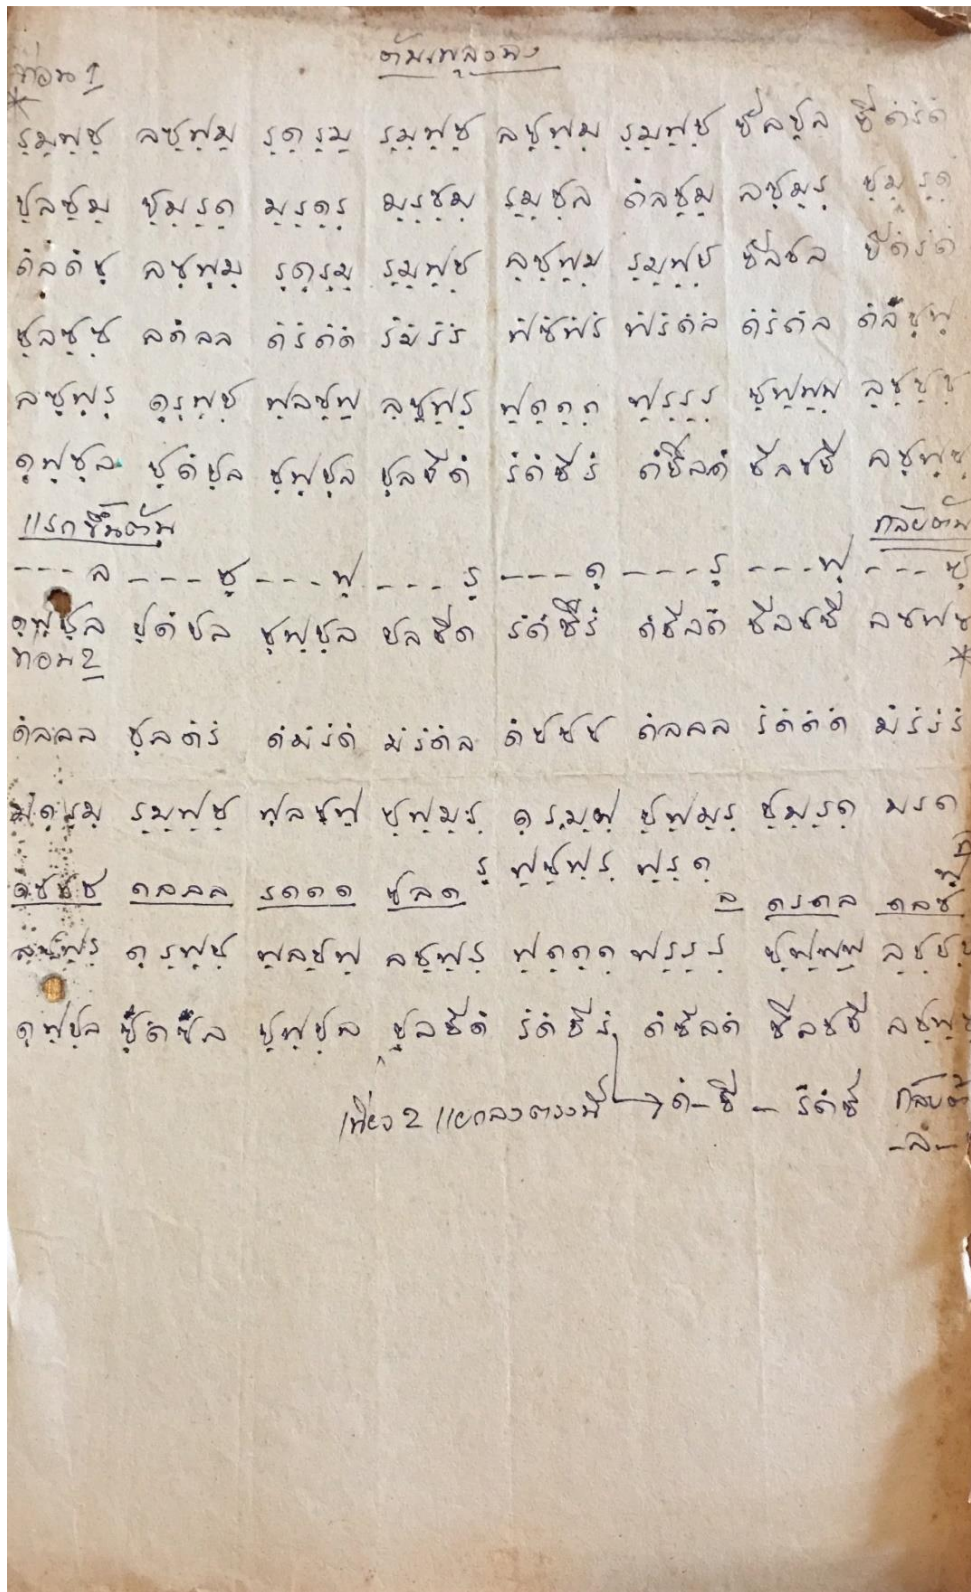 ต้นเพลงฉิ่ง
ท่อน 1
รฺมฺฟฺซฺ ลซฺฟฺมฺ รฺดฺรฺมฺ รฺมฺฟฺซฺ ลซฺฟฺมฺ รฺมฺฟฺซฺ ทีลซฺล ทีดํรํดํ
ซฺลซฺมฺ ซฺมฺรฺดฺ มฺรฺดฺรฺ มฺรฺซฺมฺ รฺมฺซฺล ดํลซฺมฺ ลซฺมฺรฺ ซฺมฺรฺดฺ
ดํลดํซฺ ลซฺฟฺมฺ รฺดฺรฺมฺ รฺมฺฟฺซฺ ลซฺฟฺมฺ รฺมฺฟฺซฺ ซีลซล ซีดํรํดํ
ซฺลซฺซฺ ลดํลล ดํรํดํดํ รํมํรํรํ ฟํซํฟํรํ ฟํรํดํล ดํรํดํล ดํลซฺฟฺ
ลซฺฟฺรฺ ดฺรฺฟฺซฺ ฟฺลซฺฟฺ ลซฺฟฺรฺ ฟฺดฺดฺดฺ ฟฺรฺรฺรฺ ซฺฟฺฟฺฟฺ ลซฺซฺซฺ
ดฺฟฺซฺล ซฺดํซฺล ซฺฟฺซฺล ซฺลซีดํ รํดํซีรํ ดํซีลดํ ซีลซซี ลซฺฟฺซฺ
แรกขึ้นต้น กลับต้น
- - - ล - - - ซฺ - - - ฟฺ - - - รฺ - - - ดฺ - - - รฺ - - - ฟฺ - - - ซฺ
ดฺฟฺซฺล ซฺดํซล ซฺฟฺซฺล ซลซีด รํดํซีรํ ดํซีลดํ ซีลซซี ลซฟซ
ท่อน 2
ดํลลล ซฺลดํรํ ดํมํรํดํ มํรํดํล ดํซซซ ดํลลล รํดํดํดํ มํรํรํรํ
มฺดฺรฺมฺ รฺมฺฟฺซฺ ฟฺลซฺฟฺ ซฺฟฺมฺรฺ ดฺรฺมฺฟฺ ซฺฟฺมฺรฺ ซฺมฺรฺดฺ มรด
รฺ ฟฺซฺฟฺรฺ ฟฺรฺดฺ
ดซซซ ดลลล รดดด ซลด ล ดรดล ดลซ
ลซฺฟฺรฺ ดฺรฺฟฺซฺ ฟฺลซฺฟฺ ลซฺฟฺรฺ ฟฺดฺดฺดฺ ฟฺรฺรฺรฺ ซฺฟฺฟฺฟฺ ลซฺซฺซฺ
ดฺฟฺซฺล ซฺดํซล ซฺฟฺซฺล ซฺลซีดํ รํดํซีรํ ดํซีลดํ ซีลซซี ลซฺฟฺซฺ
เที่ยว 2 แยกลงตรงนี้ → ดํ - ซี - รํดํซี กลับต้
- ล -